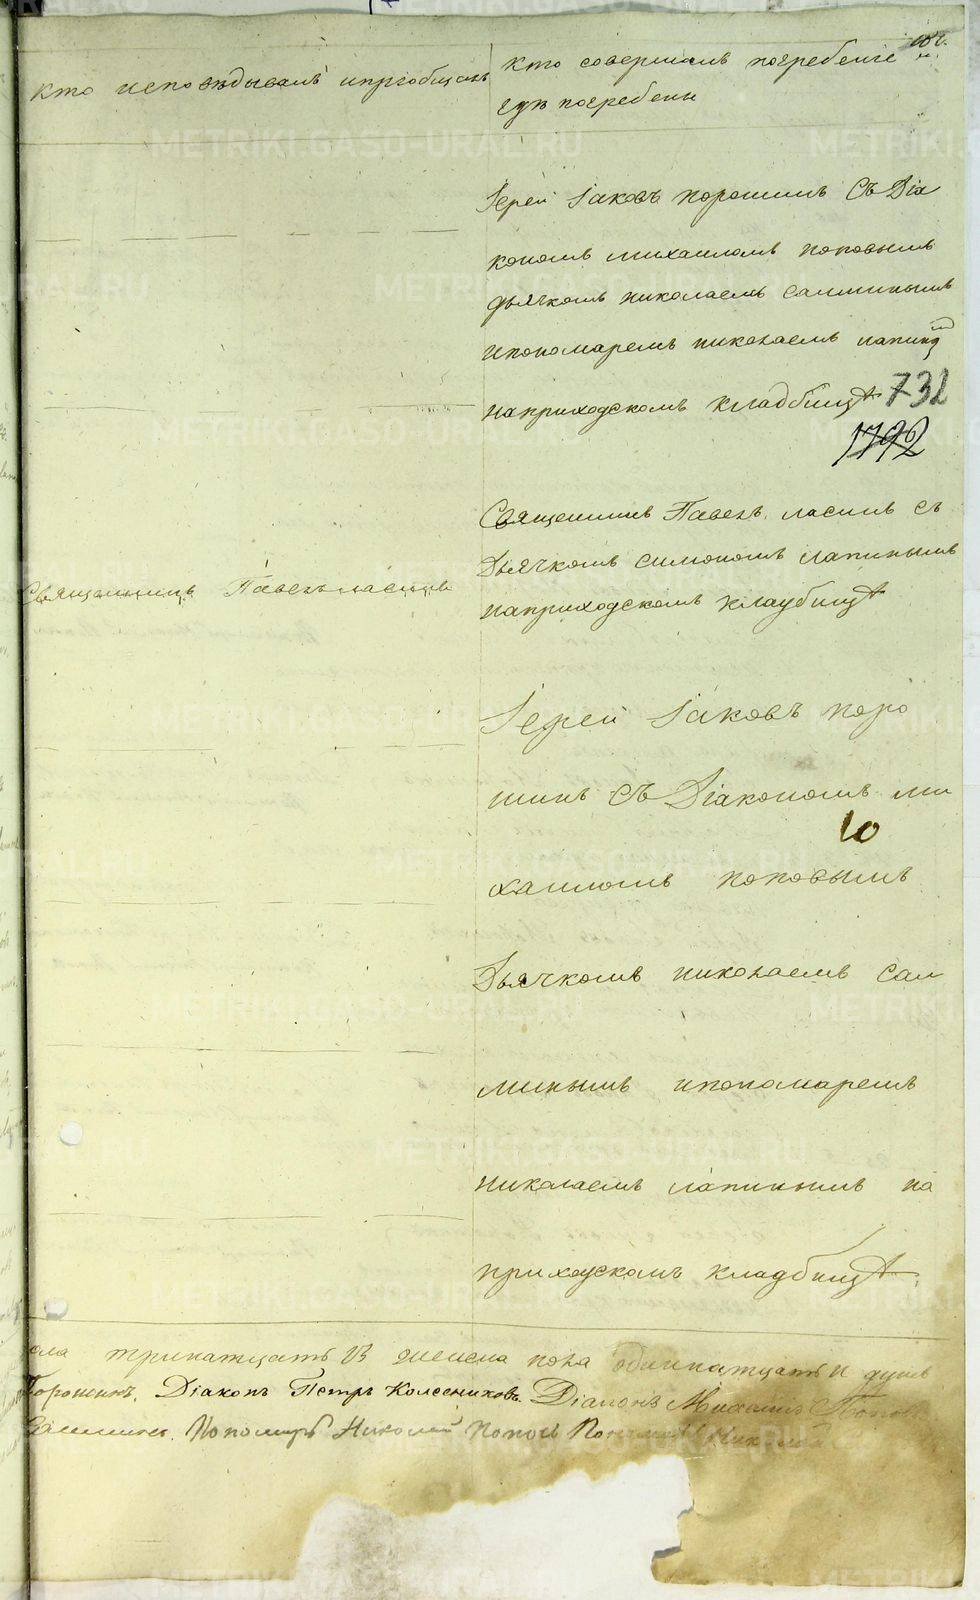 кто исповѣдывалъ ипрiобщалъ
кто совершалъ погребенiе и
гдѣ погребены
Iерей Iаковъ порошинъ Съ Дiа
кономъ михаиломъ поповымъ
дьячкомъ николаемъ салминымъ
ипономаремъ николаемъ лапинымъ
наприходскомъ кладбищѣ 732
1792
Священникъ Павелъ ласинъ съ
Дьячкомъ симономъ лапинымъ
Священникъ Павелъ ласинъ
наприходскомъ клаубищѣ
Iерей Iаковъ поро
шинъ Съ Дiакономъ ми
10
хаиломъ поповымъ
Дьячкомъ николаемъ сал
минымъ ипономаремъ
николаемъ лапинымъ на
приходскомъ кладбищѣ
ола тритцать 13 женска пола одинатцать 11 душъ
Порошинъ. Дiаконъ Петръ Колесниковъ. Дiаконъ Михаилъ Попов
Салминъ. Пономарь Николай Попов Пономарь Николай
METRIKI.GASO-URAL.RU